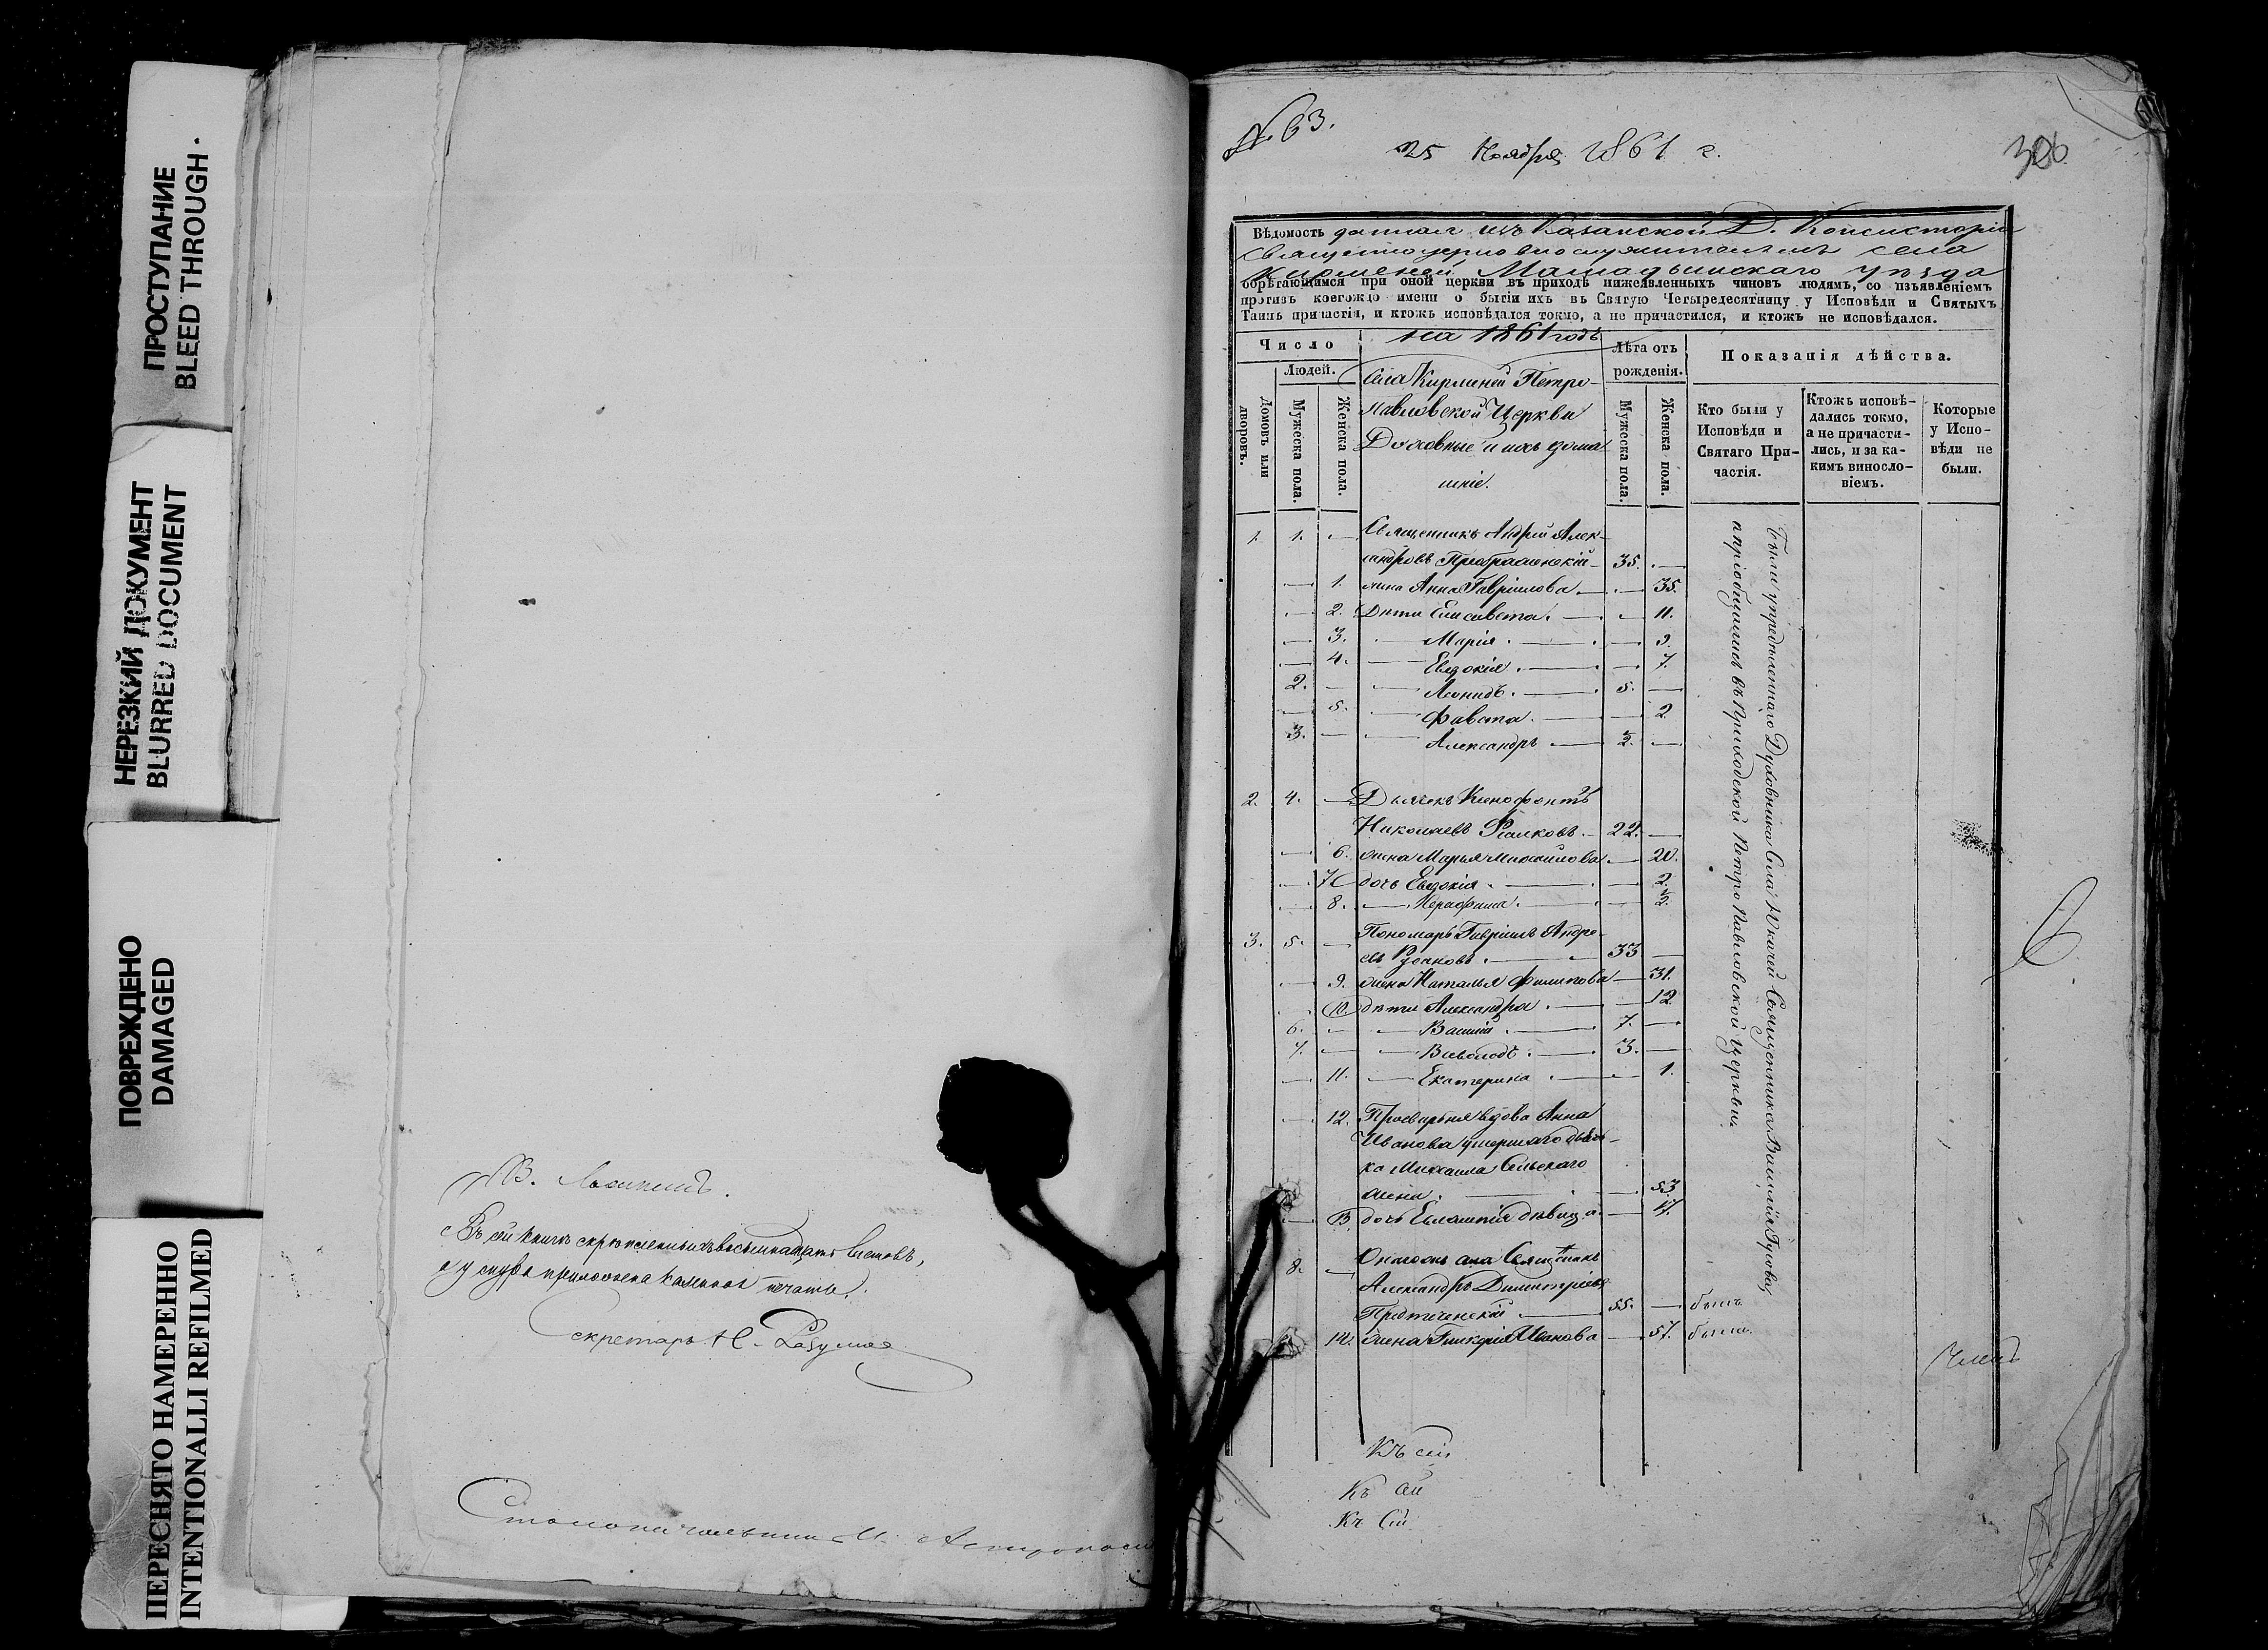 ПРОСТУПАНИЕ
BLEED THROUGH
НЕРЕЗКИЙ ДОКУМЕНТ
BLURRED DOCUMENT
ПОВРЕЖДЕНО
DAMAGED
ПЕРЕСНЯТО НАМЕРЕННО
INTENTIONALLI REFILMED
Въ сей книгѣ скрѣпленныхъ восемнадцать листовъ,
а у снура приложена казенная печать.
Секретарь Н. Разумов
Столоначальник
№ 63.
25 Ноября 1861 г.
306
Вѣдомость данная изъ Казанской Д. Консисторіи
Священноцерковнослужителямъ села
Кирменей Мамадышскаго уѣзда
обрѣтающимся при оной церкви въ приходѣ нижеявленныхъ чиновъ людямъ, со изъявленіемъ
противъ коегождо имени о бытіи ихъ въ Святую Четыредесятницу у Исповѣди и Святыхъ
Таинъ причастія, и ктожъ исповѣдался токмо, а не причастился, и ктожъ не исповѣдался.
на 1861 годъ
Число
Людей.
Домовъ или дворовъ.
Мужеска пола.
Женска пола.
Села Кирменей Петро-
Павловской Церкви
Духовные и ихъ дома
шніе.
Лѣта отъ рожденія.
Мужеска пола.
Женска пола.
Показанія дѣйства.
Кто были у Исповѣди и Святаго Причастія.
Ктожъ исповѣдались токмо, а не причастились, и за какимъ винословіемъ.
Которые у Исповѣди не были.
1. 1. — Священникъ Андрей Алек-
сандровъ Преображенскій 35. —
— 1. жена Анна Гавріилова — 35.
— 2. Дѣти Елисавета — 11.
— 3. Марія — 9.
— 4. Евдокія — 7.
2. — Леонидъ 5. —
— 5. Фавста — 2.
3. — Александръ —
2. 4. — Дьячекъ Ксенофонтъ
Николаевъ 22. —
— 6. жена Марья Михайлова — 20.
— 7. дочь Евдокія — 2.
— 8.
3. 5. — Пономарь Гавріилъ Андре-
евъ Русановъ 33 —
— 9. жена Наталья Филипова — 31.
— 10. дѣти Александра — 12
6. — Василій 7. —
7. — Всеволодъ 3. —
— 11. Екатерина — 1.
— 12. Просвирня вдова Анна
Иванова умершаго дьяч-
ка Михаила Сельскаго
жена — 53
— 13. дочь Евлампія дѣвица — 17.
8. — Священникъ
Александръ Димитріевъ
Предтеченскій 55. — былъ
14. жена Гликерія Иванова — 57. была
Были у предѣленнаго Духовника Села Юкачей Священника Василія Гусева
и пріобщились въ Приходской Петро Павловской церкви.
Къ сей
Къ сей
Къ сей